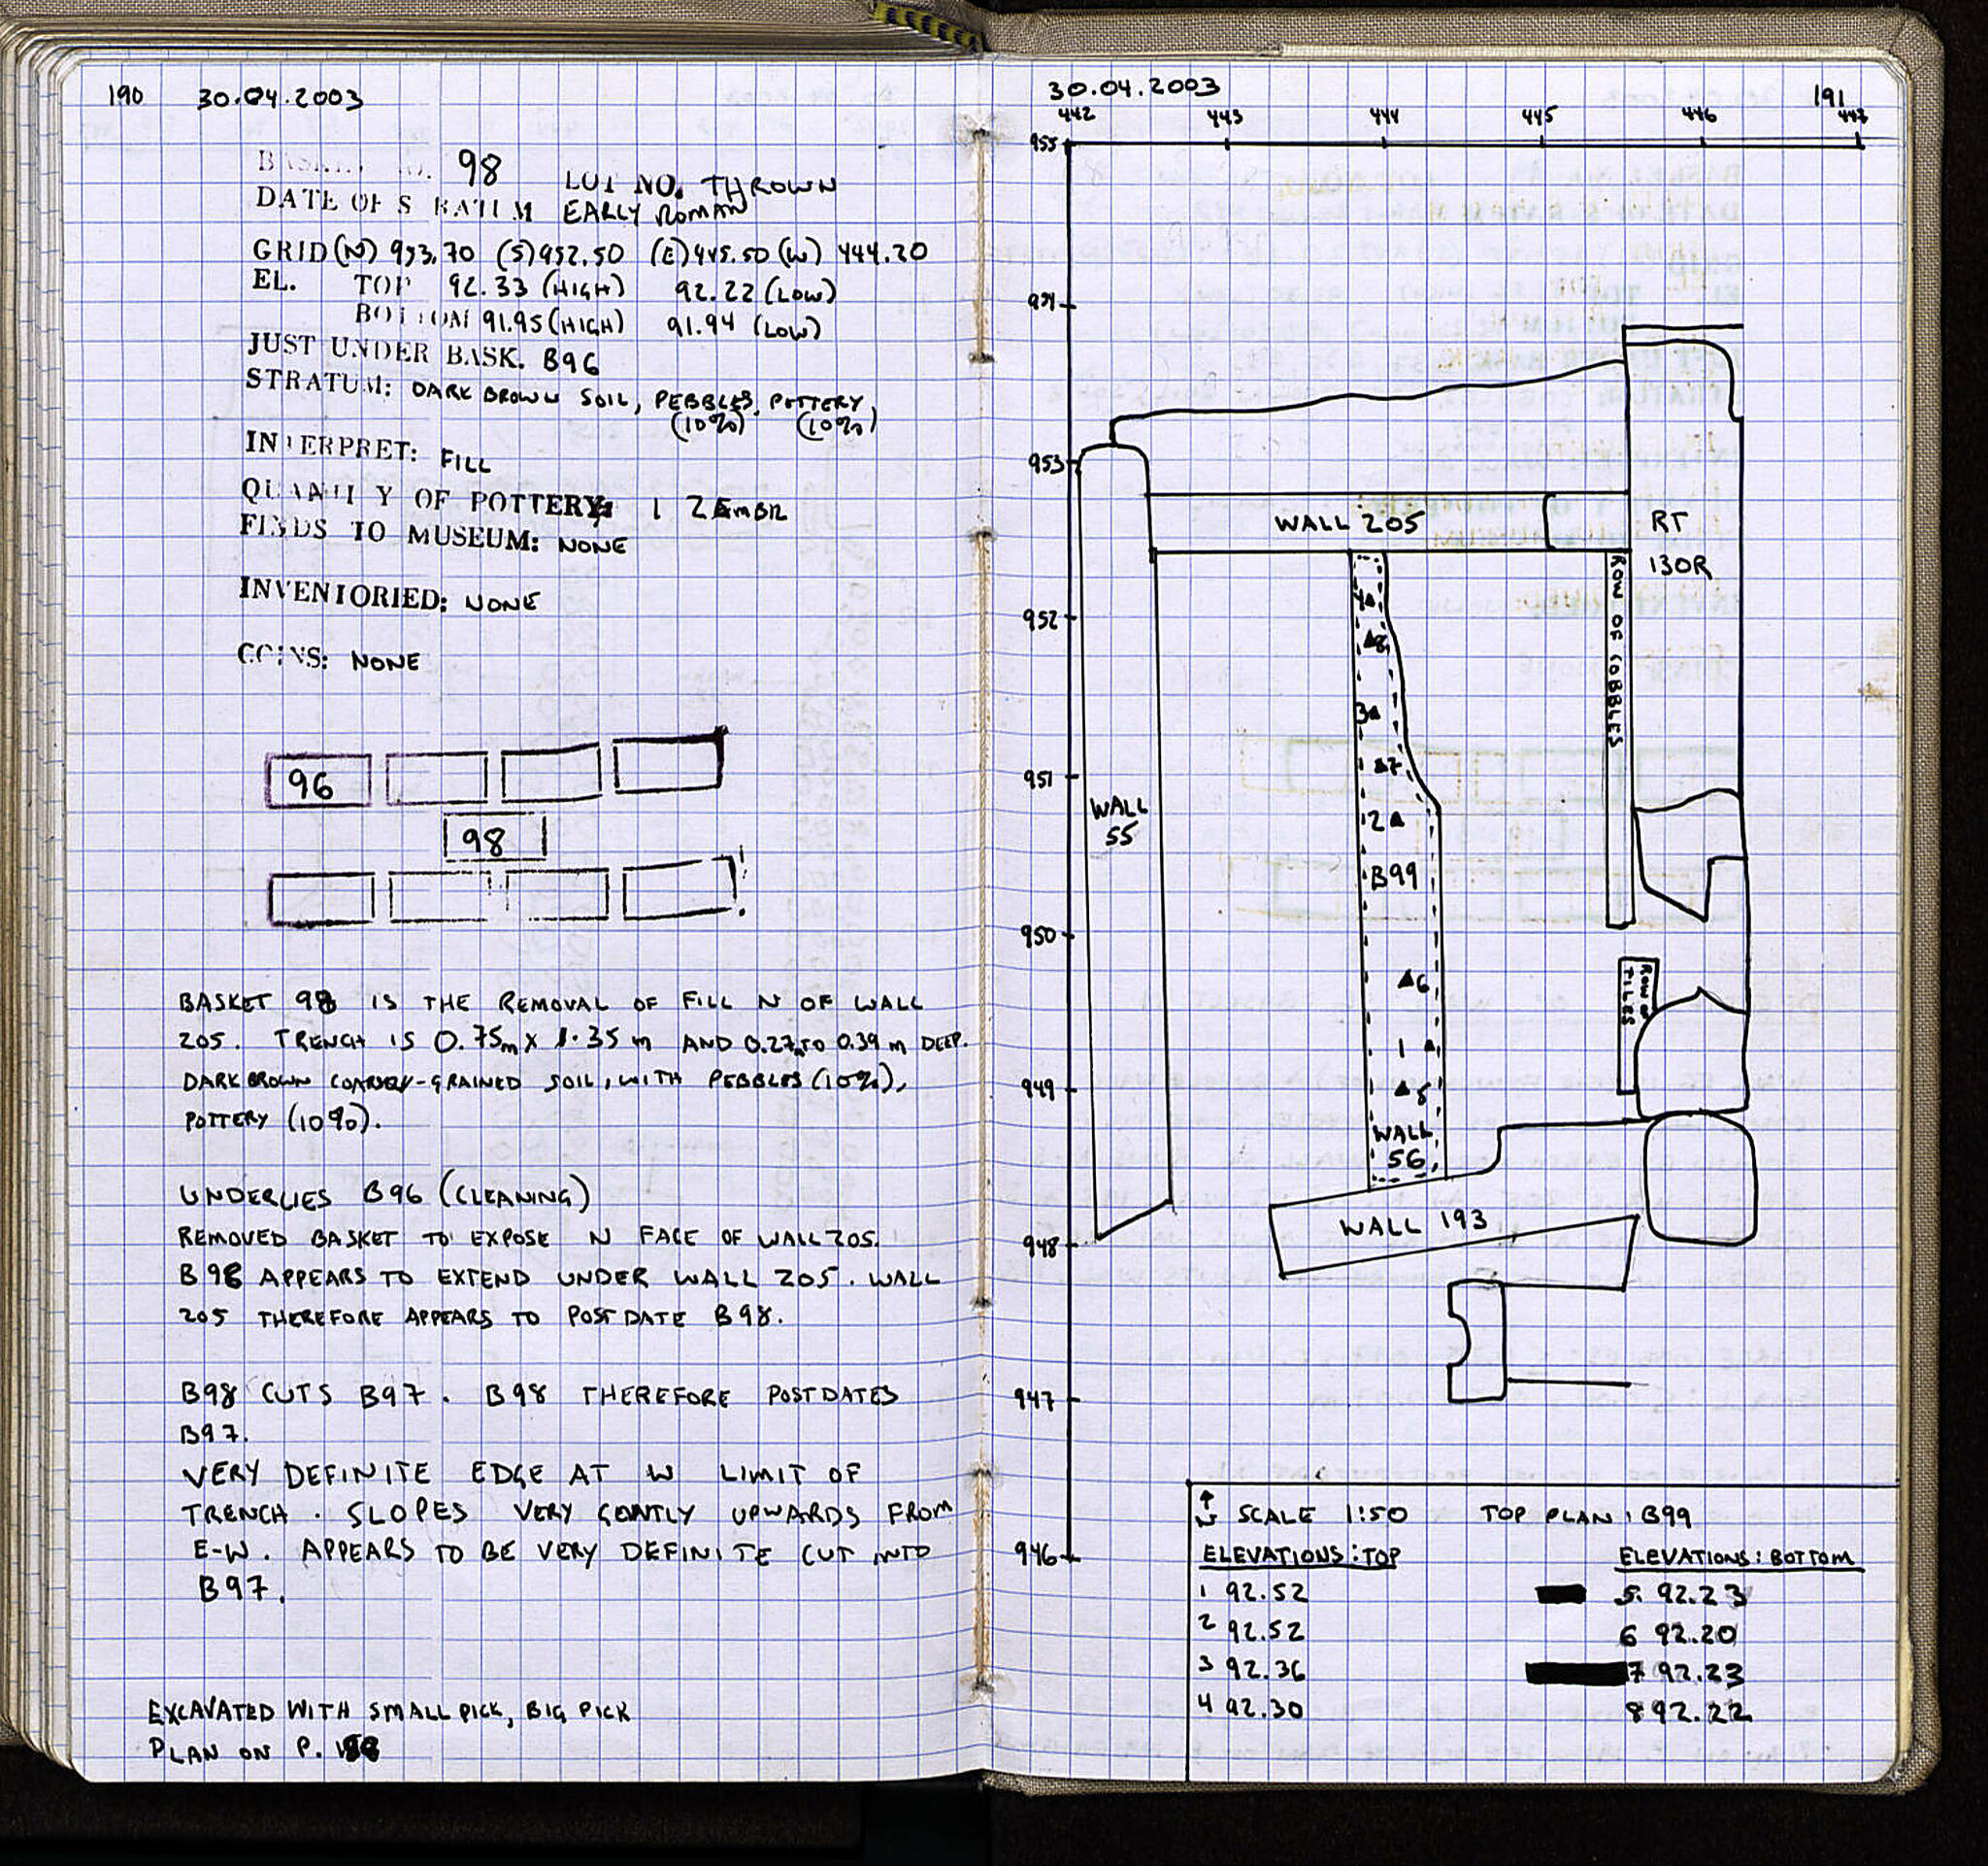 190 30.04.2003
BASKET NO. 98 LOT NO. THROWN
DATE OF STRATUM EARLY ROMAN
GRID (N) 953.70 (S) 952.50 (E) 445.50 (W) 444.20
EL. TOP 92.33 (HIGH) 92.22 (LOW)
BOTTOM 91.95 (HIGH) 91.94 (LOW)
JUST UNDER BASK. B96
STRATUM: DARK BROWN SOIL, PEBBLES, POTTERY
(10%) (10%)
INTERPRET: FILL
QUANTITY OF POTTERY: 1 ZEMBIL
FINDS TO MUSEUM: NONE
INVENTORIED: NONE
COINS: NONE
96
98
BASKET 98 IS THE REMOVAL OF FILL N OF WALL
205. TRENCH IS 0.75m X 1.35 m AND 0.27 TO 0.39 m DEEP.
DARK BROWN COARSELY-GRAINED SOIL, WITH PEBBLES (10%),
POTTERY (10%).
UNDERLIES B96 (CLEANING)
REMOVED BASKET TO EXPOSE N FACE OF WALL 205.
B98 APPEARS TO EXTEND UNDER WALL 205. WALL
205 THEREFORE APPEARS TO POSTDATE B98.
B98 CUTS B97. B98 THEREFORE POSTDATES
B97.
VERY DEFINITE EDGE AT W LIMIT OF
TRENCH. SLOPES VERY GENTLY UPWARDS FROM
E-W. APPEARS TO BE VERY DEFINITE CUT INTO
B97.
EXCAVATED WITH SMALL PICK, BIG PICK
PLAN ON P.
30.04.2003 191
442 443 444 445 446 447
955
954
953
952
951
950
949
948
947
946
WALL 205
RT
130R
ROW OF COBBLES
4
8
3
7
2
B99
6
1
5
WALL
55
ROW OF
TILES
WALL
56
WALL 193
N SCALE 1:50 TOP PLAN: B99
ELEVATIONS: TOP ELEVATIONS: BOTTOM
1 92.52 5. 92.23
2 92.52 6 92.20
3 92.36 7 92.23
4 92.30 8 92.22